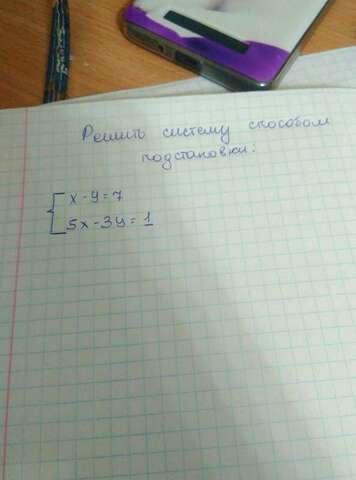 Решить систему способом
подстановки:
x - y = 7
5x - 3y = 1